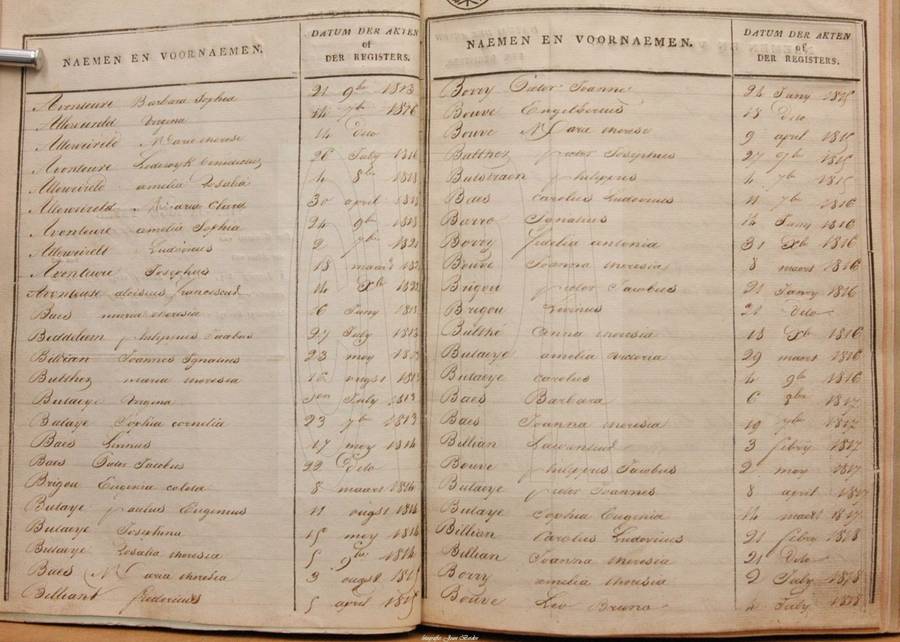 NAEMEN EN VOORNAEMEN.
DATUM DER AKTEN
of
DER REGISTERS.
Avonteure Barbara Sophia 21 9br 1813
Allewereld Virgina 14 7br 1816
Allewireld Maria therese 14 dito
Avonteure Ludowyk 26 July 1816
Allewireld amelia Rosalia 4 8br 1818
Allewireld Maria Clara 30 april 1818
Avonteure amelia Sophia 24 9br 1818
Allewirelt Ludovicus 2 7br 1820
Avonteure Josephus 18 maart
Avonteure aloisius franciscus 14 Xbr 1822
Baes maria theresia 16 Jany 1813
Beddelem philippus Jacobus 27 July 1813
Billian Joannes Ignatius 23 mey 1813
Bulthez maria theresia 16 augst 1813
Bulaeye Virgina July 1813
Bulaye Sophia cornelia 23 7br 1813
Baes Linnus 17 mey 1814
Baes Pieter Jacobus 22 dito
Brigou Eugenia coleta 8 maart 1814
Bulaye paulus Eugenius 11 augst 1814
Bulaeye Josephina 15 mey 1814
Bulaeye Rosalia theresia 5 9br 1814
Baes Maria theresia 3 augst 1815
Billiant fredericus 5 april 1815
NAEMEN EN VOORNAEMEN.
DATUM DER AKTEN
of
DER REGISTERS.
Borry Pieter Joannes 26 Jany 1815
Bouve Engelbertus 18 dito
Bouve Maria therese 9 april 1815
Bulthez pieter Josephus 27 9br 1815
Bulstraen philippus 4 7br 1815
Baes carolus Ludovicus 11 7br 1816
Borre Ignatius 14 Jany 1816
Borry fidelia antonia 31 Xbr 1816
Bouve Joanna theresia 8 maart 1816
Brigou pieter Jacobus 21 Janry 1816
Brigou Livinus 21 dito
Bulthé anna theresia 18 Xbr 1816
Bulaeye amelia victoria 29 maart 1816
Bulaeye carolus 4 9br 1816
Baes Barbara 6 8br 1817
Baes Joanna theresia 19 7br 1817
Billian Laurentius 3 febry 1817
Bouve philippus Jacobus 2 mey 1817
Bulaeye pieter Joannes 8 april 1817
Bulaye Sophia Eugenia 14 maart 1817
Billian Carolus Ludovicus 21 febry 1818
Billian Joanna theresia 21 dito
Borry amelia theresia 2 July 1818
Bouve Leo Bruno 4 July 1818